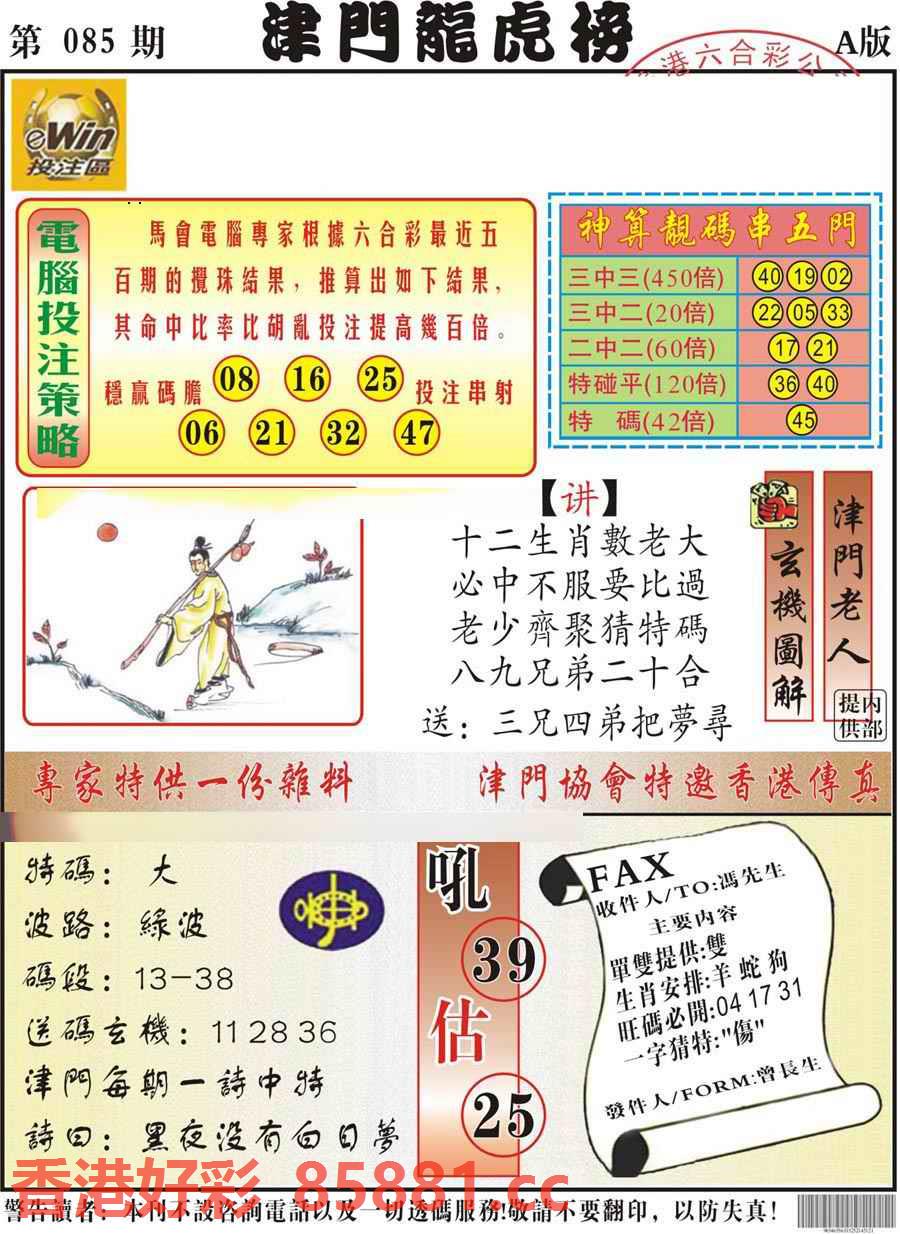 第 085 期
津門龍虎榜
A版
港六合彩公
eWin
投注區
電腦投注策略
馬會電腦專家根據六合彩最近五
百期的攪珠結果，推算出如下結果，
其命中比率比胡亂投注提高幾百倍。
穩贏碼膽 08 16 25 投注串射
06 21 32 47
神算靚碼串五門
三中三(450倍) 40 19 02
三中二(20倍) 22 05 33
二中二(60倍) 17 21
特碰平(120倍) 36 40
特 碼(42倍) 45
【讲】
十二生肖數老大
必中不服要比過
老少齊聚猜特碼
八九兄弟二十合
送：三兄四弟把夢尋
玄機圖解
津門老人
內部提供
專家特供一份雜料
津門協會特邀香港傳真
特碼：大
波路：綠波
碼段：13-38
送碼玄機：11 28 36
津門每期一詩中特
詩曰：黑夜没有白日夢
吼
39
估
25
FAX
收件人/TO:馮先生
主要内容
單雙提供:雙
生肖安排:羊 蛇 狗
旺碼必開:04 17 31
一字猜特:"傷"
發件人/FORM:曾長生
香港好彩 85881.cc
警告讀者：本刊不設咨詢電話以及一切透碼服務!敬請不要翻印，以防失真!